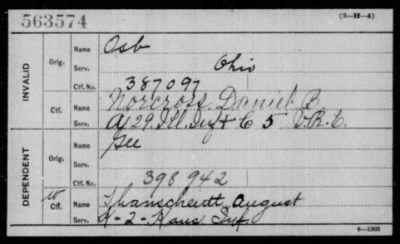 563574
(3-H-4)
INVALID
Orig.
Name Osb
Serv. Ohio
Ctf. No. 387097
Ctf.
Name Norcross, Daniel B.
Serv. A, 29, Ill. Inf + C 5 V.R.C.
DEPENDENT
Orig.
Name Gee
Serv.
Ctf. No. 398942
W Ctf.
Name August
Serv. H-2-Kans Inf